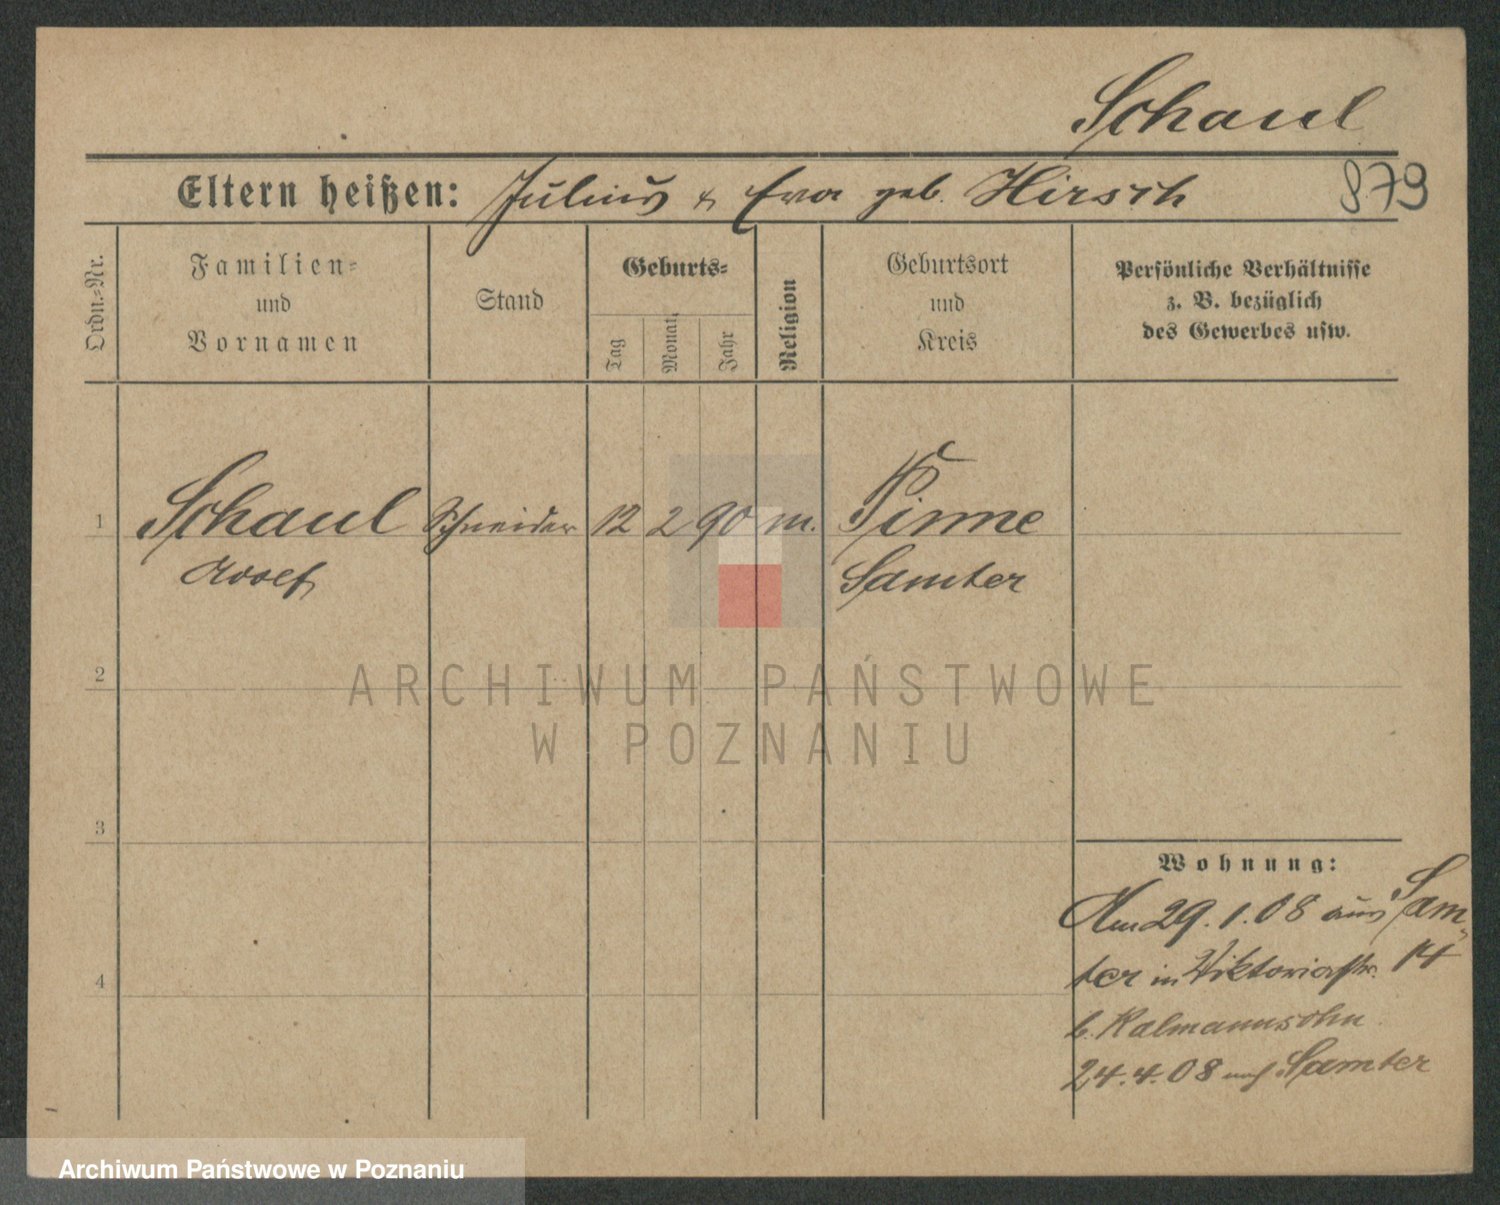 Schaul
Eltern heißen: Julius & Eva geb. Hirsch
879
Ordn.-Nr.
Familien-
und
Vornamen
Stand
Geburts-
Tag
Monat
Jahr
Religion
Geburtsort
und
Kreis
Persönliche Verhältnisse
z. B. bezüglich
des Gewerbes usw.
1 Schaul Schneider 12 2 90 m. Pinne
Josef Samter
2
ARCHIWUM PAŃSTWOWE
W POZNANIU
3
Wohnung:
Am 29.1.08 aus Sam-
ter in Viktoriastr. 14
b. Kalmannsohn
24.4.08 nach Samter
4
Archiwum Państwowe w Poznaniu